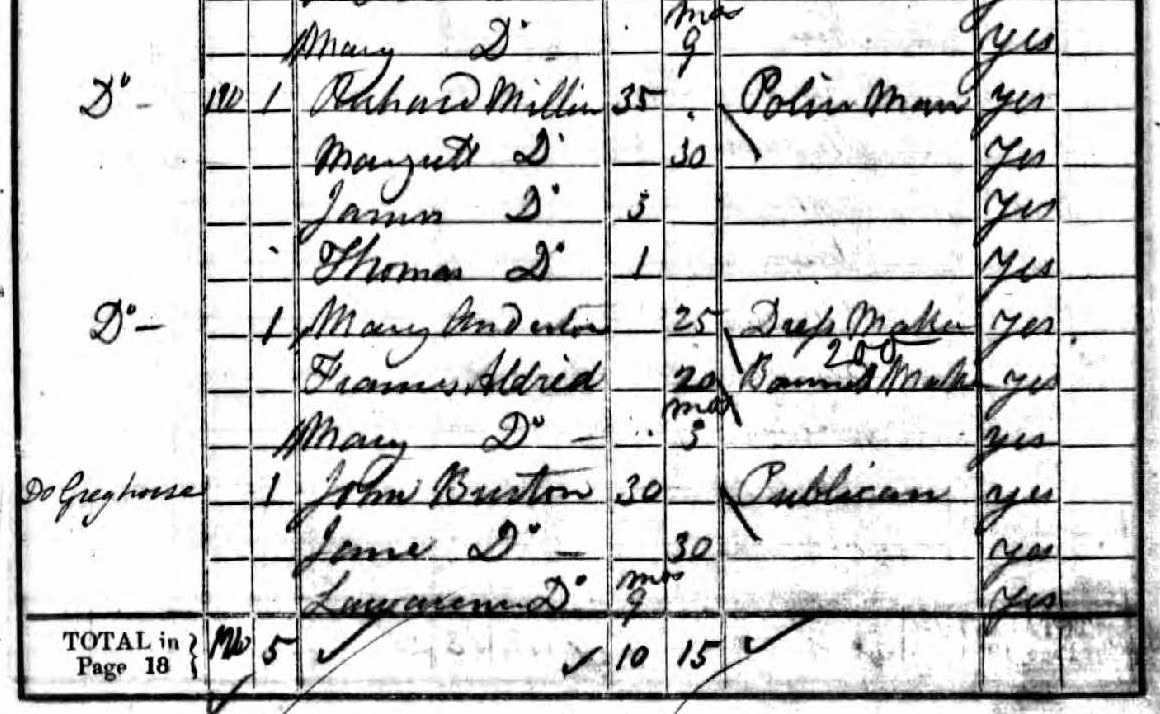 mos
Mary Do 9 yes
Do 1 Richard Millin 35 Police Man yes
Margrett Do 30 Yes
James Do 3 Yes
Thomas Do 1 Yes
Do 1 Mary Anderton 25 Dress Maker Yes
200
Frances Aldred 20 Bonnet Mak yes
mos
Mary Do 3 yes
Do Greyhorse 1 John Burton 30 Publican yes
Jane Do 30 yes
mos
Do 9 Yes
TOTAL in
Page 18 5 10 15